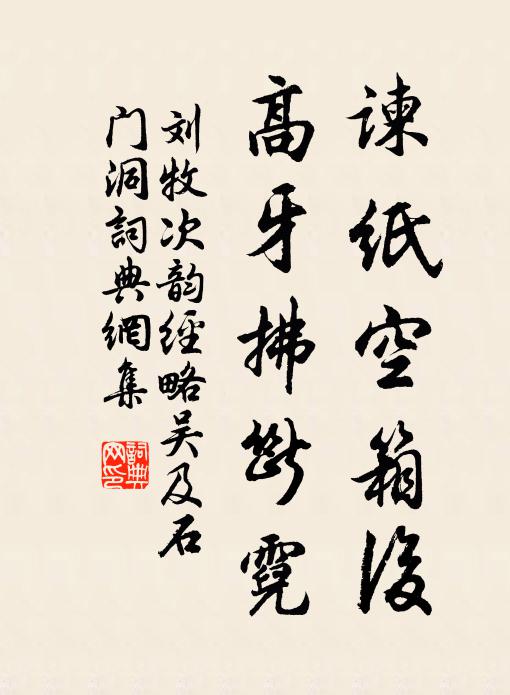 谏纸空箱后
高牙拂断霓
刘牧次韵经略吴及石
门洞词典网集
词典网印